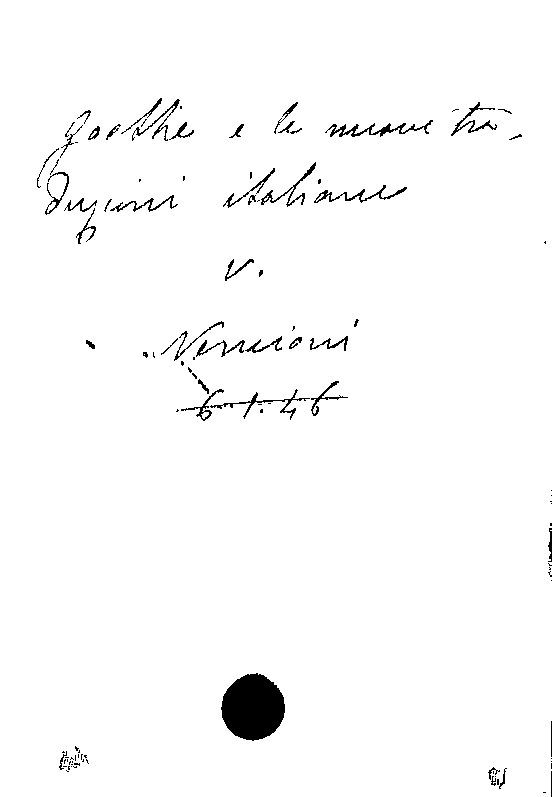 Goethe e le nuove tra-
duzioni italiane
v.
Nencioni
6.1.46